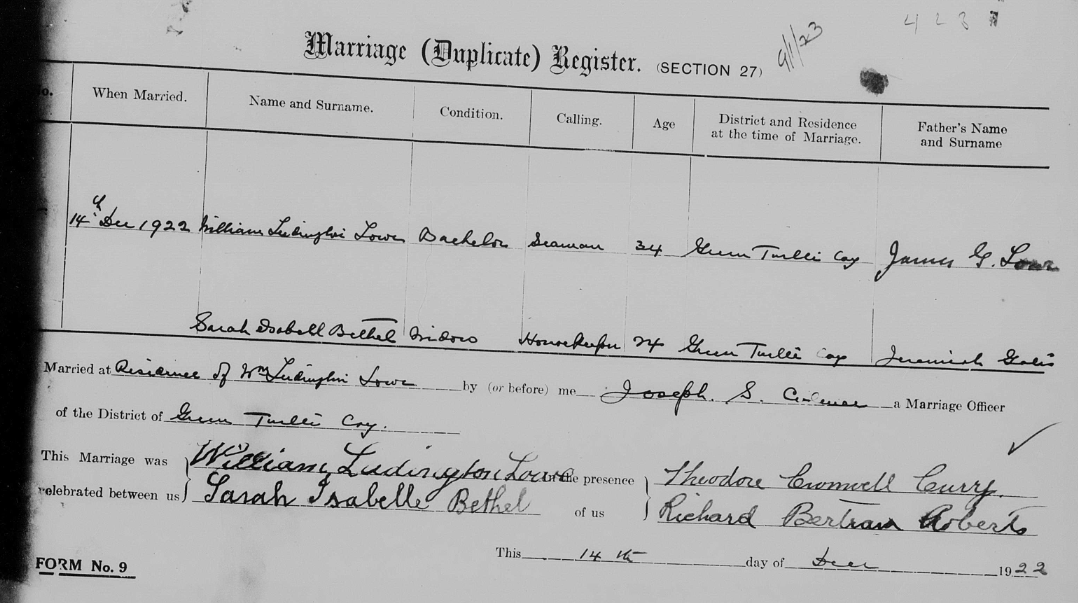 4287
9/1/23
Marriage (Duplicate) Register. (SECTION 27)
When Married. Name and Surname. Condition. Calling. Age District and Residence at the time of Marriage. Father's Name and Surname
14th Dec 1922 William Ludington Lowe Bachelor Seaman 34 Green Turtle Cay James G. Lowe
Sarah Isabell Bethel Widow Housekeeper 24 Green Turtle Cay Jeremiah
Married at Residence of Wm Ludington Lowe by (or before) me Joseph S. a Marriage Officer
of the District of Green Turtle Cay.
This Marriage was William Ludington Lowe the presence Theodore Cromwell Curry
celebrated between us Sarah Isabelle Bethel of us Richard Bertram Roberts
This 14th day of Dec 1922
FORM No. 9